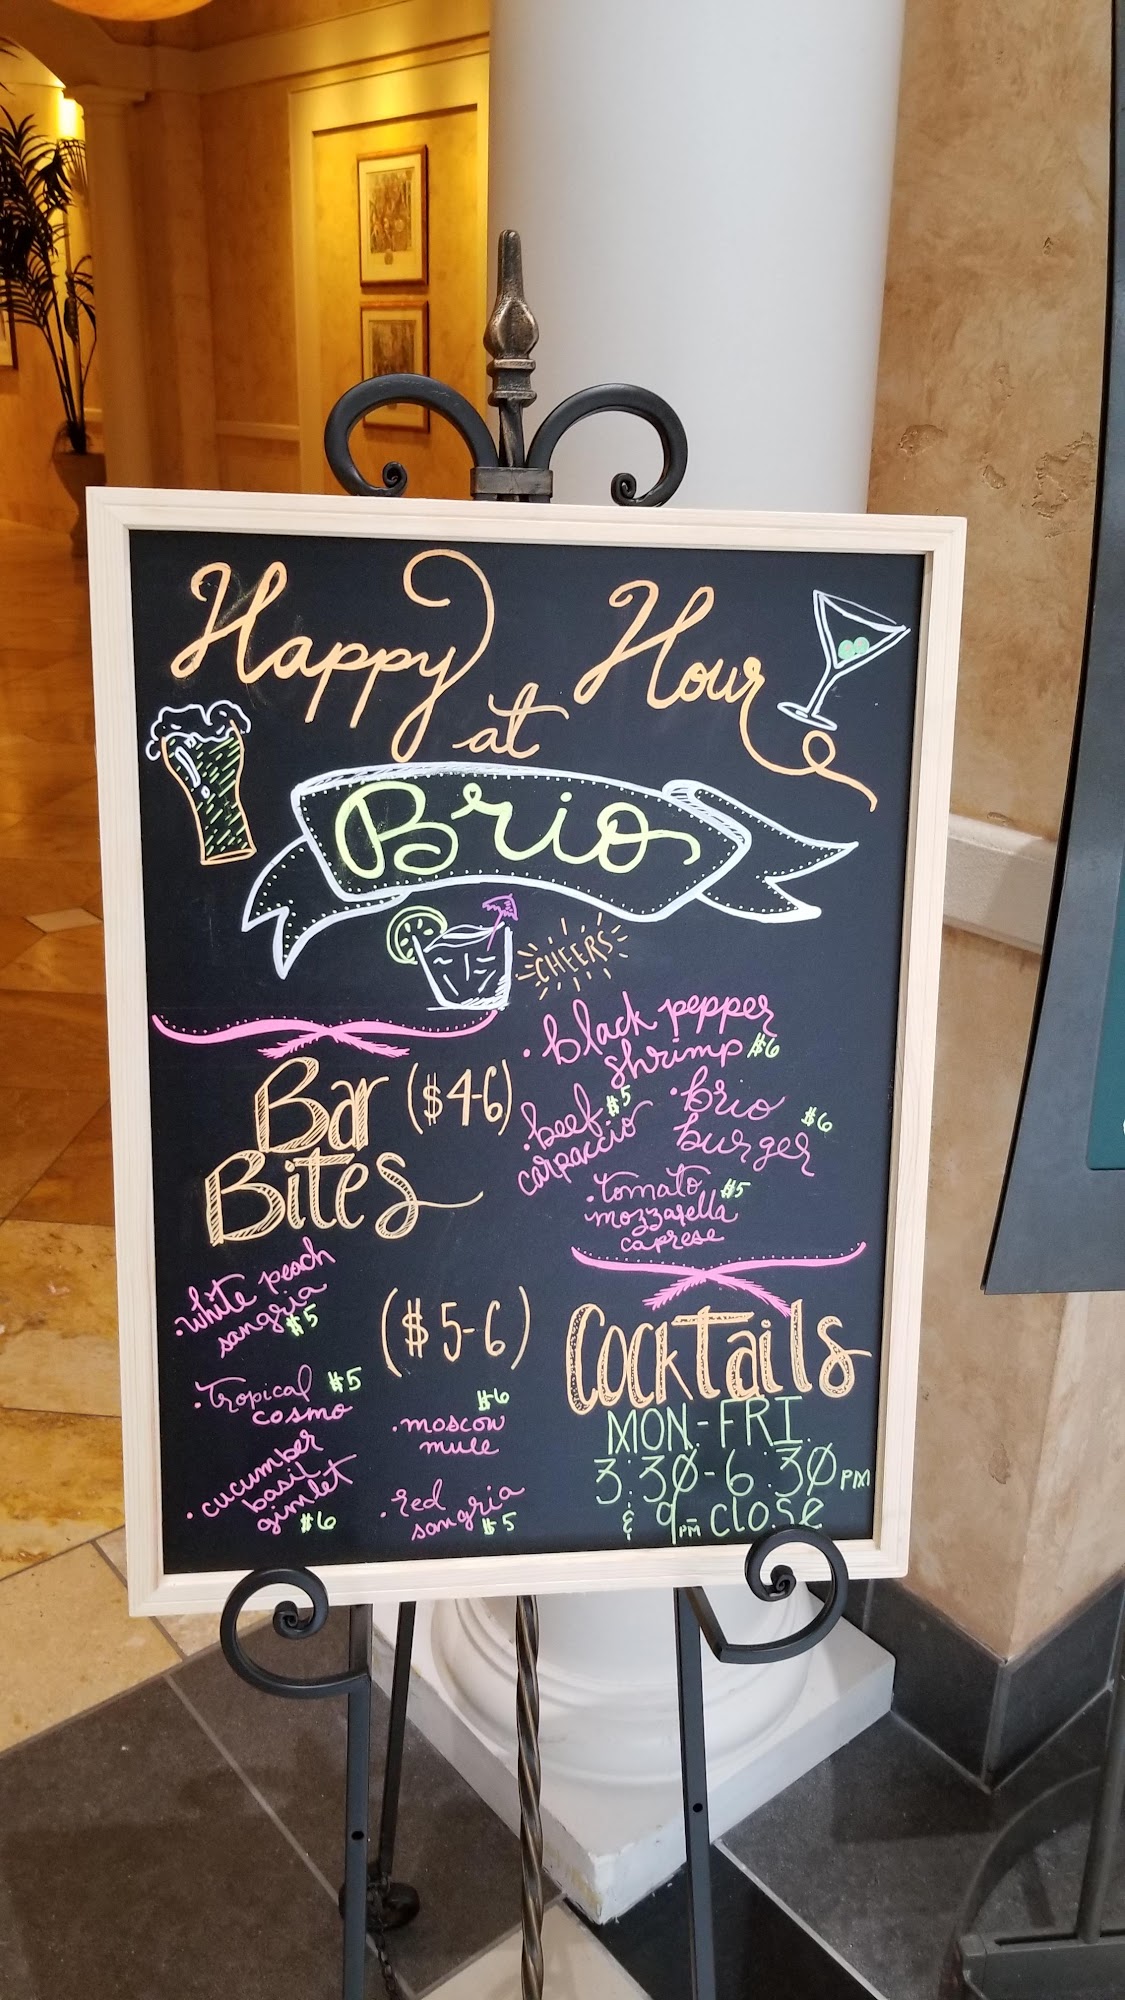 Happy Hour
at
Brio
CHEERS
Bar ($4-6)
Bites
• black pepper
shrimp $6
• beef $5
carpaccio
• brio $6
burger
• tomato $5
mozzarella
caprese
Cocktails
($5-6)
• white peach
sangria
$5
• tropical $5
cosmo
• cucumber
basil
gimlet
$6
$6
• moscow
mule
• red
sangria
$5
MON-FRI
3:30-6:30PM
& 9PM-close